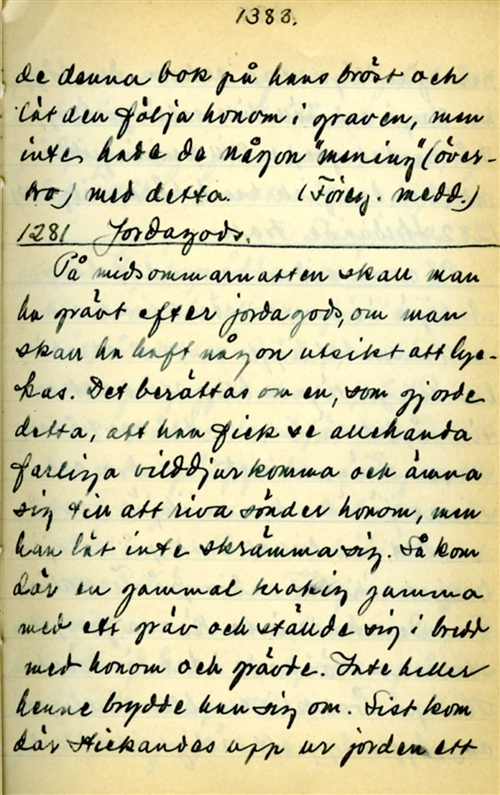 1388.
de denna bok på hans bröst och
lät den följa honom i graven, men
inte hade de någon "mening" (över-
tro) med detta. (Föreg. medd.)
1281 Jordagods.
På midsommarnatten skall man
ha grävt efter jordagods, om man
skall ha haft någon utsikt att lyc-
kas. Det berättas om en, som gjorde
detta, att han fick se allehanda
farliga vilddjur komma och ämna
sig till att riva sönder honom, men
han lät inte skrämma sig. Så kom
där en gammal krokig gumma
med ett gräv och ställde sig i bredd
med honom och grävde. Inte heller
henne brydde han sig om. Sist kom
där stickandes upp ur jorden ett